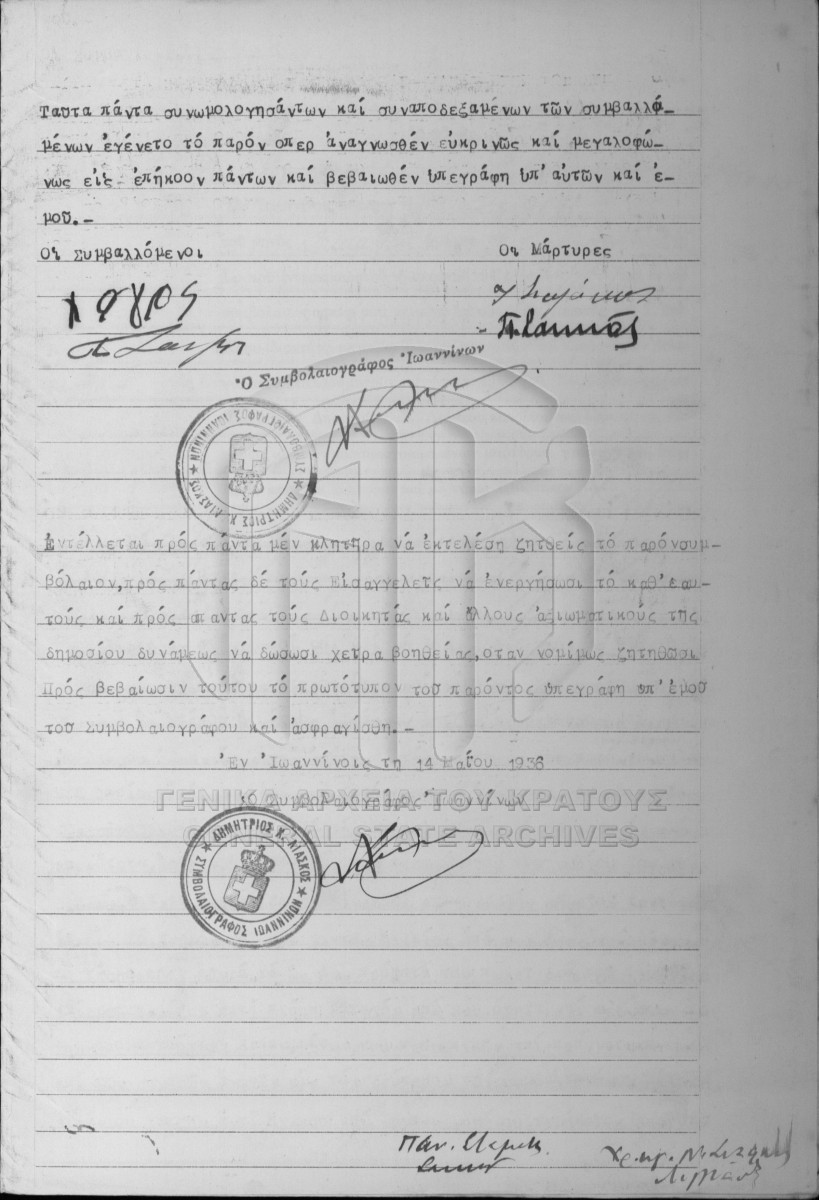 Ταῦτα πάντα συνωμολογησάντων καί συναποδεξαμένων τῶν συμβαλλο-
μένων ἐγένετο τό παρόν οπερ ἀναγνωσθέν εὐκρινῶς καί μεγαλοφώ-
νως είς ἐπήκοον πάντων καί βεβαιωθέν ὑπεγράφη ὑπ'αὐτῶν καί ἐ-
μοῦ.-
Οἱ Συμβαλλόμενοι Οἱ Μάρτυρες
Ὁ Συμβολαιογράφος Ἰωαννίνων
ΔΗΜΗΤΡΙΟΣ Χ. ΛΙΑΣΚΟΣ
ΣΥΜΒΟΛΑΙΟΓΡΑΦΟΣ ΙΩΑΝΝΙΝΩΝ
Ἐντέλλεται πρός πάντα μέν κλητῆρα νά ἐκτελέση ζητθείς τό παρόνσυμ-
βόλαιον,πρός πάντας δέ τούς Είσαγγελεῖς νά ἐνεργήσωσι τό καθ'εαυ-
τούς καί πρός απαντας τούς Διοικητάς καί ἄλλους ἀξιωματικούς τῆς
δημοσίου δυνάμεως νά δώσωσι χεῖρα βοηθείας,οταν νομίμως ζητηθῶσι
Πρός βεβαίωσιν τούτου τό πρωτότυπον τοῦ παρόντος ὑπεγράφη ὑπ'ἐμοῦ
τοῦ Συμβολαιογράφου καί ἀσφραγίσθη.-
Ἐν Ἰωαννίνοις τῆ 14 Μαΐου 1936
Ὁ Συμβολαιογράφος Ἰωαννίνων
ΓΕΝΙΚΑ ΑΡΧΕΙΑ ΤΟΥ ΚΡΑΤΟΥΣ
GENERAL STATE ARCHIVES
ΔΗΜΗΤΡΙΟΣ Χ. ΛΙΑΣΚΟΣ
ΣΥΜΒΟΛΑΙΟΓΡΑΦΟΣ ΙΩΑΝΝΙΝΩΝ
Παν.